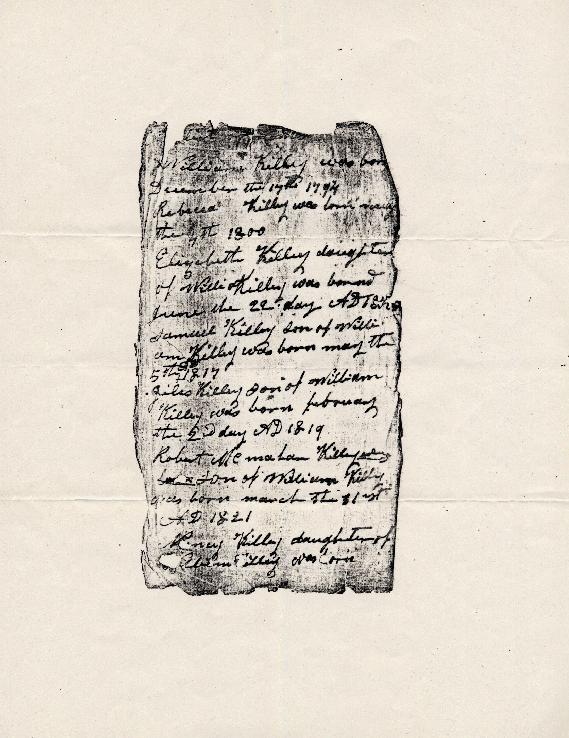 William Killey was born
December the 17th 1794
Rebecca Killey was born may
the 9th 1800
Elizabeth Killey daughter
of Killey was bornd
June the 22 day AD
Samuel Killey Son of Willi
am Killey was born may the
5th 1817
Giles Killey Son of William
Killey was born february
the 2D day AD 1819
Robert McmahanKilley
Son of William Killey
was born march the 31st
AD 1821
Killey daughter of
Killey was born